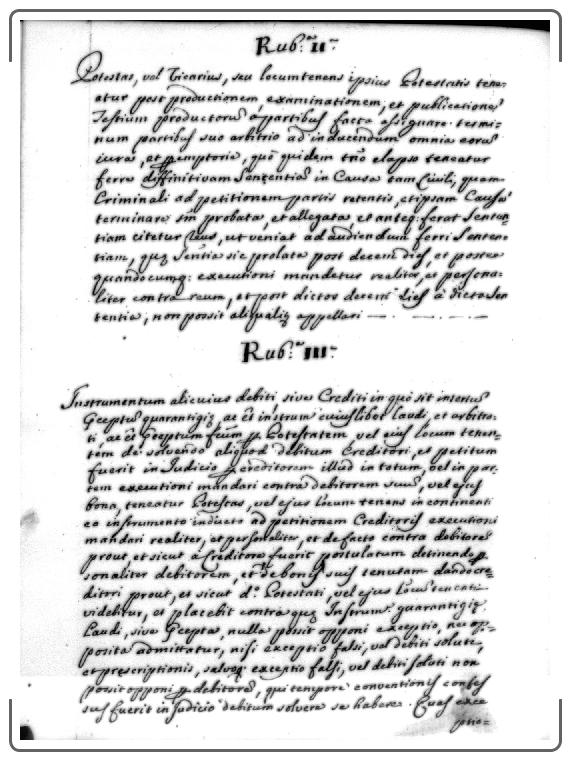 Rub.ª II.ª
Potestas, vel Vicarius, seu locumtenens ipsius Potestatis tene=
atur post productionem, examinationem, et publicationẽ
Testium productorũ à partibus facta assignare termi=
num partibus suo arbitrio ad inducendum omnia eorũ
iura, et peremptorie, quo quidem trño elapso teneatur
ferre diffinitivam Sententiã in Causa tam Civili, quam
Criminali ad petitionem partis retentis, et ipsam Causã
terminare sin probata, et allegata, et anteq. ferat Senten=
tiam citetur reus, ut veniat ad audiendum ferri Senten=
tiam, quę Sentia sic prolata post decem dies, et postea
quandocumq: executioni mandetur realiter, et persona=
liter contra reum, et post dictos decem dies à dicta Sen
tentia, non possit aliqualiq appellari
Rub.ª III.ª
Instrumentum alicuius debiti sive Crediti in quo sit insertũ
Pceptũ quarantigię, ac et instrum cuiuslibet Laudi, et arbitro=
ti, ac et Pceptum fcum p Potestatem vel eius locum tenen=
tem de solvendo aliquod debitum Creditori, et petitum
fuerit in Iudicio p creditorem illud in totum, vel in par=
tem executioni mandari contra debitorem suũ, vel ejus
bona, teneatur Potestas, vel ejus locum tenens in continenti
eo instrumento inducto ad petitionem Creditoris executioni
mandari realiter, et personaliter, et de facto contra debitorẽ
prout, et sicut à Creditore fuerit postulatum detinendo p
sonaliter debitorem, et de bonis suis tenutam dando cre=
ditori prout, et sicut d.º Potestati, vel ejus Locũ tenenti
videbitur, et placebit contra quę Instrum. quarantigię
Laudi, sive Pcepta, nulla possit opponi exceptio, nec op=
posita admittatur, nisi exceptio falsi, vel debiti soluti,
et prescriptionis, salvoq exceptio falsi, vel debiti soluti non
possit opponi p debitorẽ, qui tempore conventionis confes
sus fuerit in Iudicio debitum solvere se habere. Quas exce
ptio=